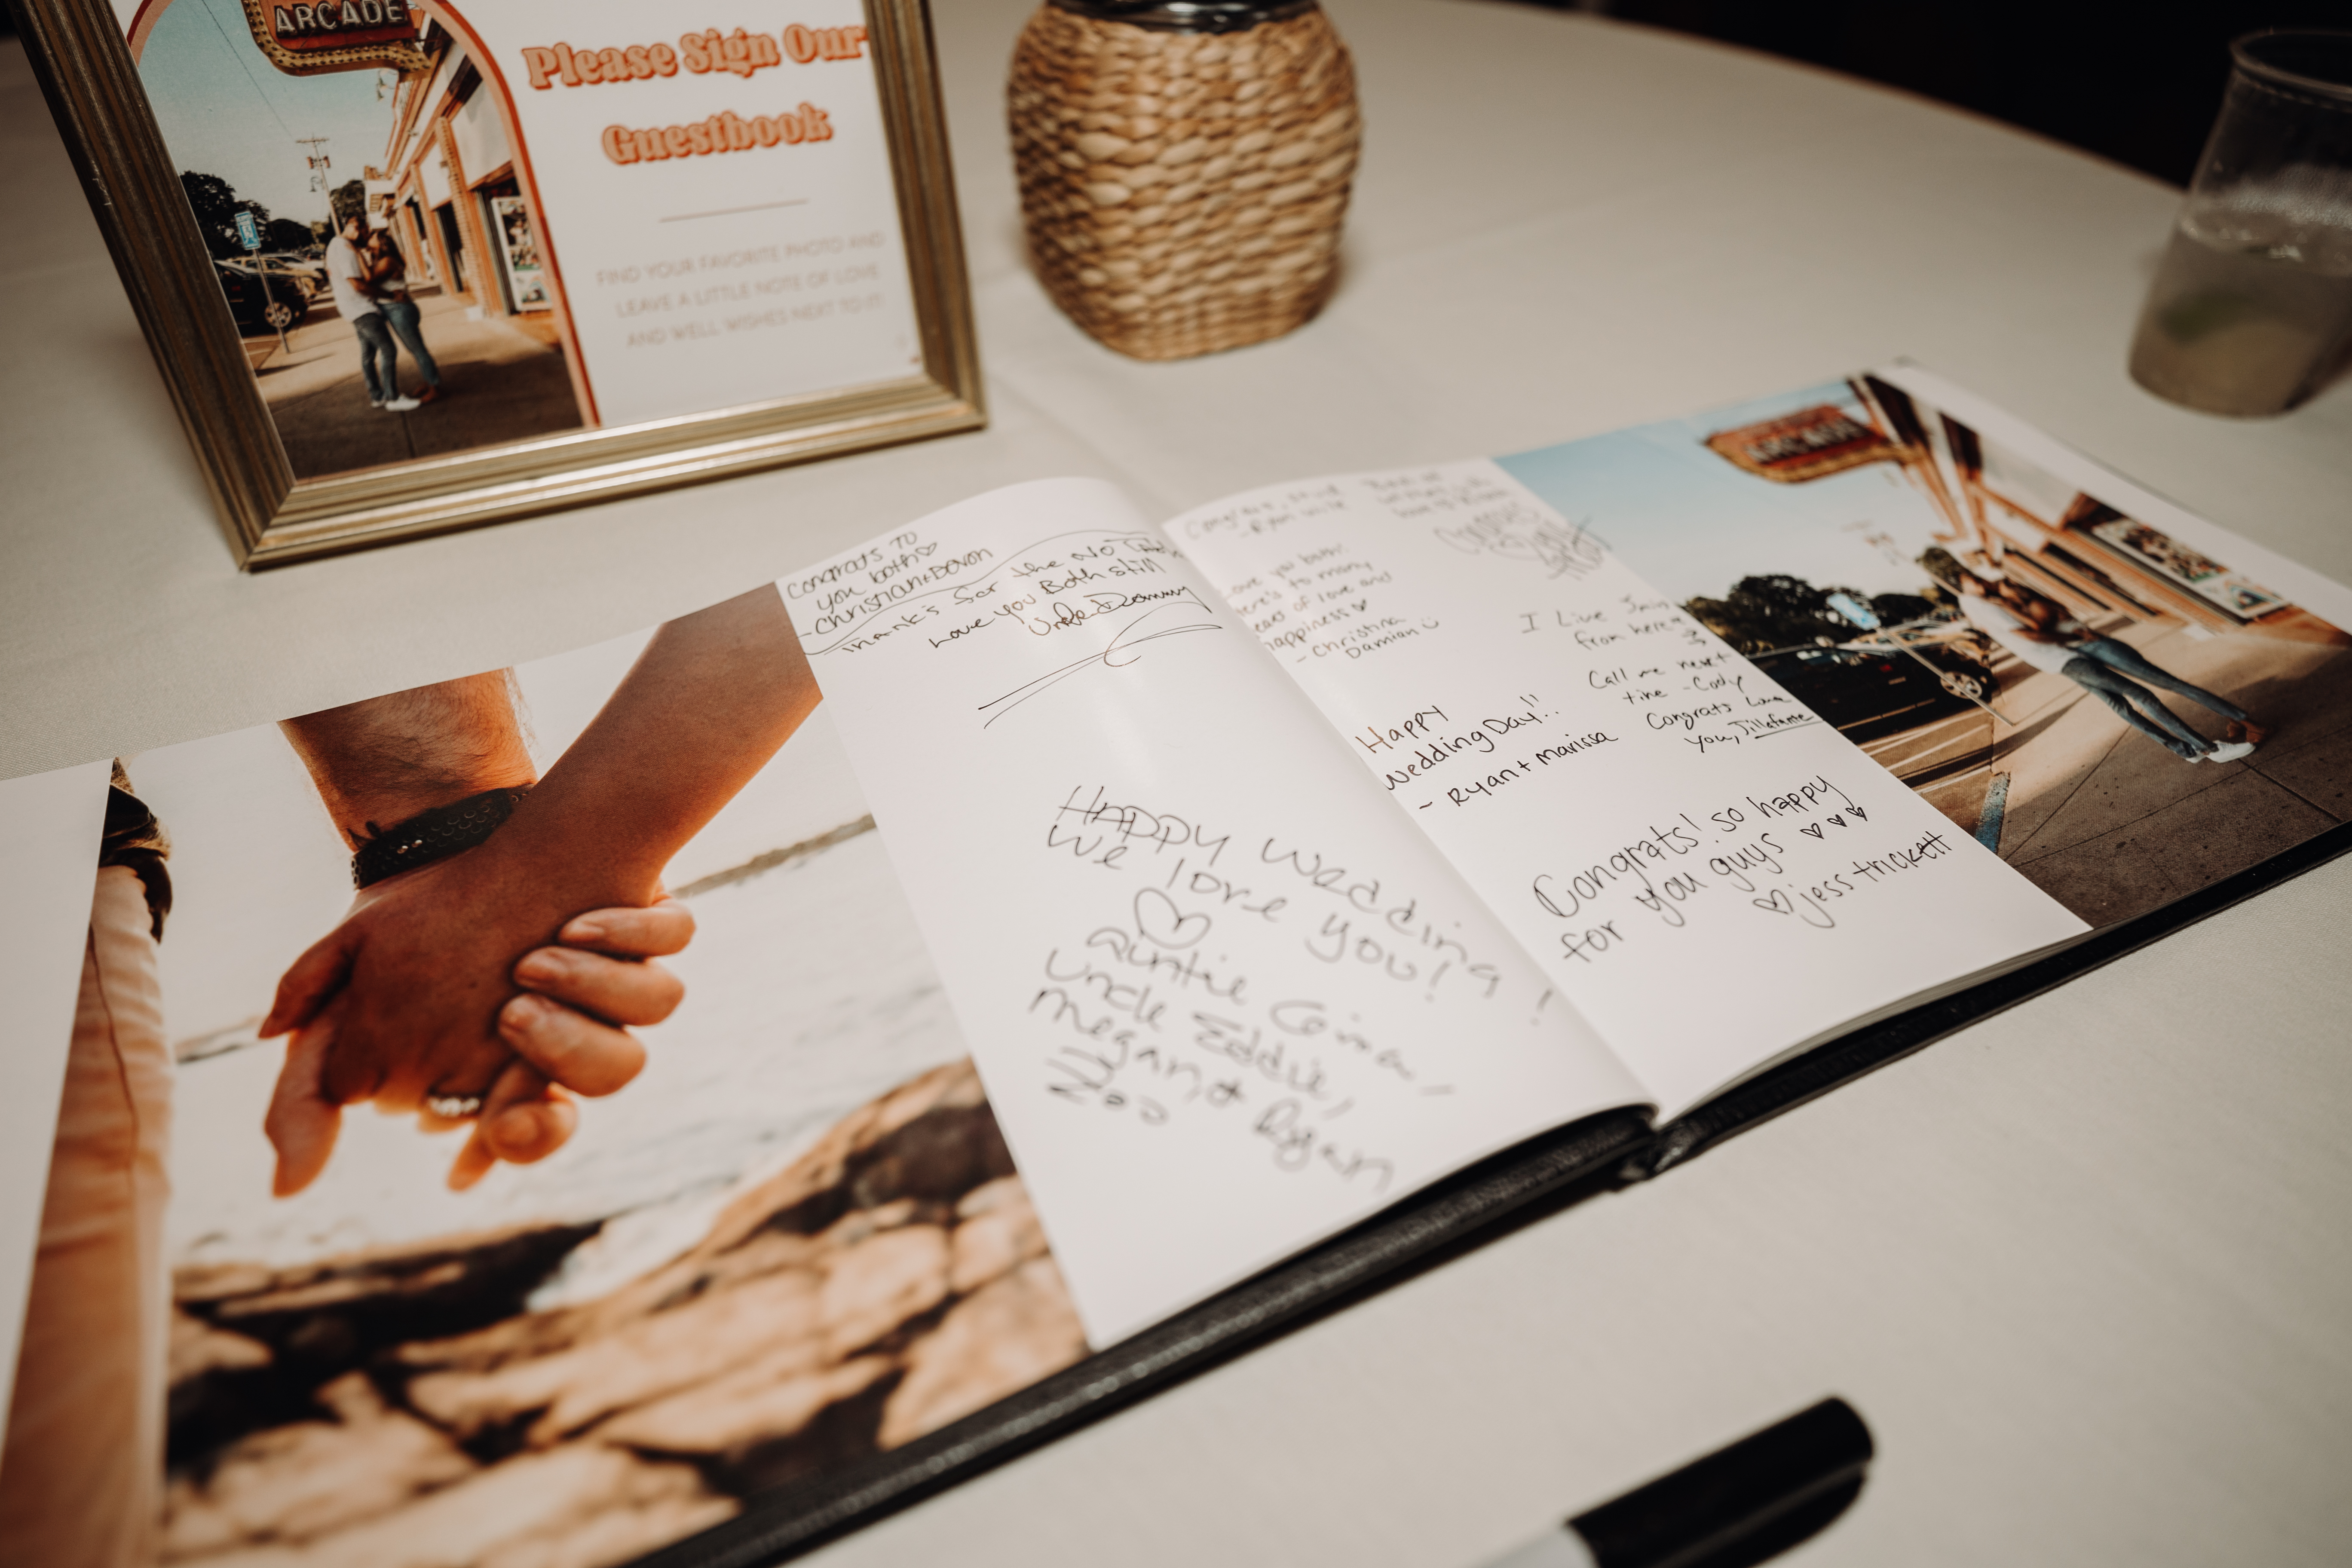 ARCADE
Please Sign Our
Guestbook
FIND YOUR FAVORITE PHOTO AND
LEAVE A LITTLE NOTE OF LOVE
AND WELL WISHES NEXT TO IT!
Congrats TO
you both
-Christian+Devon
Thank's for the NO
Love you Both still
Uncle Dommy
HAPPY Wedding!
We love you!
Auntie Gina,
Uncle Eddie,
Megan & Ryan
Congrats,
-Ryan
Love you both!
Here's to many
years of love and
happiness
- Christina
Damian
Congrats
I Live 5min
from here
Call me next
time -Cody
Congrats Love
you,
Happy
Wedding Day!!
- Ryan + Marissa
Congrats! so happy
for you guys
jess trickett
ARCADE